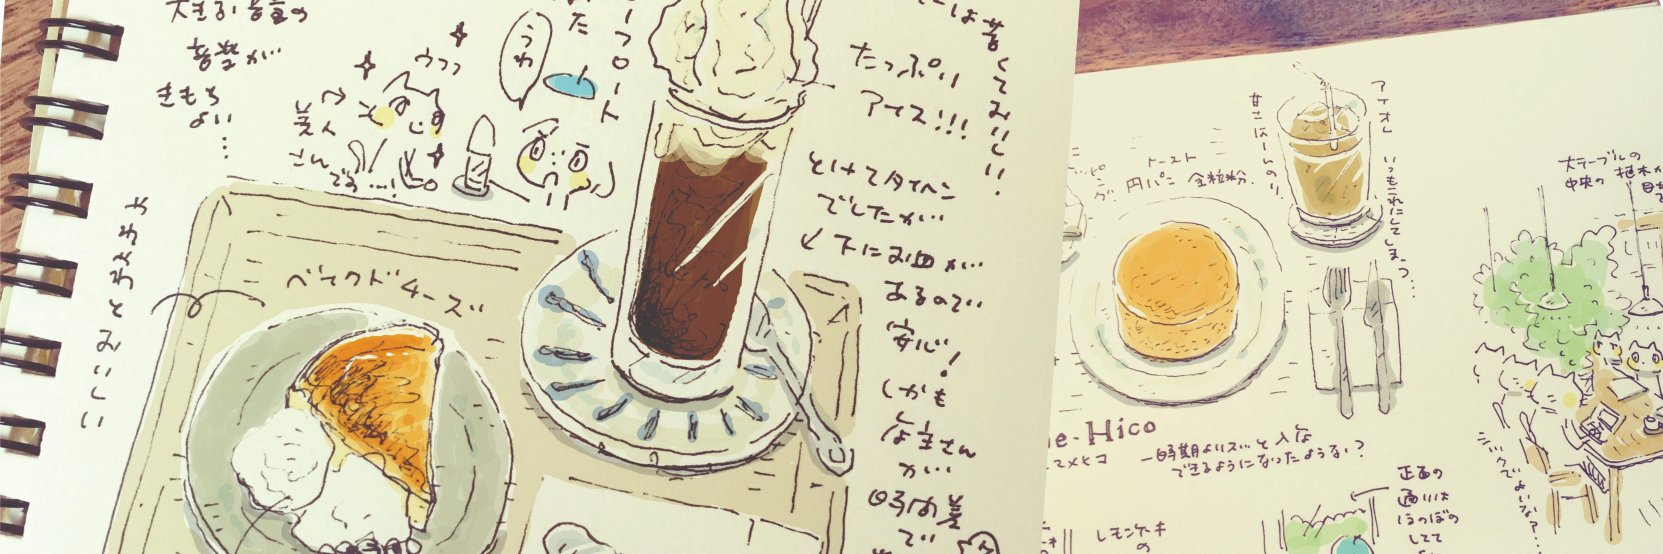 大きい音量の
音楽が
きもち
よい…
ウフフ
美人
さん
です…!
うわ
フロート
た
は苦くておいしい!
たっぷり
アイス!!!
とけてタイヘン
でしたが
下にお皿が
あるので
安心!
しかも
店主さん
が
時間差
で
ベイクドチーズ
アイスオレ
甘さはほんのり
いつもこれにしてしまう…
トースト
円パン 全粒粉
大テーブルの
中央の 植木が
e・Hico
一時期よりズット入店
できるようになったような?
正面の
通りは
してて
レモンケーキ
の